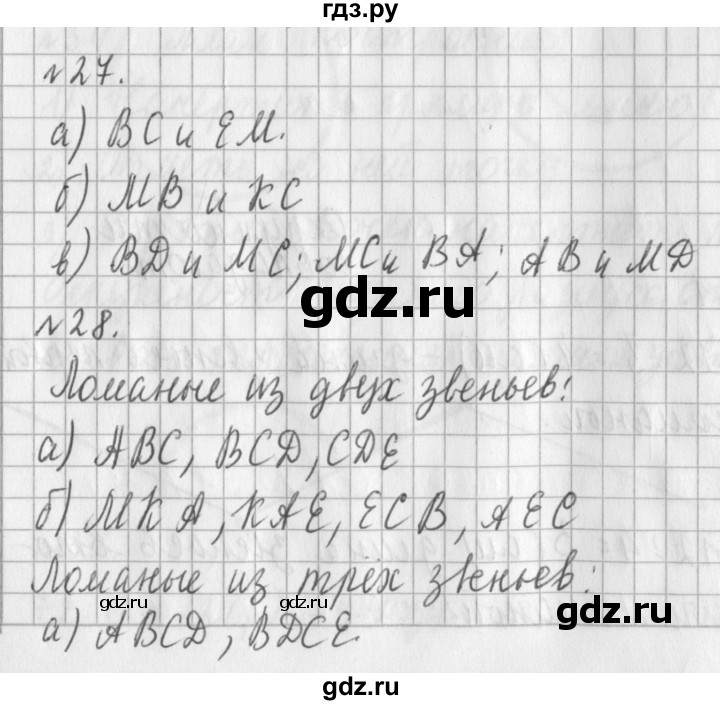 гдз.ру
№27.
а) ВС и ЕМ.
б) МВ и КС
в) ВД и МС; МС и ВА; АВ и МД
gdz.ru
№28.
Ломаные из двух звеньев:
а) АВС, ВСD, СDЕ
б) МКА, КАЕ, ЕСВ, АЕС
Ломаные из трёх звеньев:
gdz.ru gdz.ru
а) АВСD, ВDСЕ.
gdz.ru